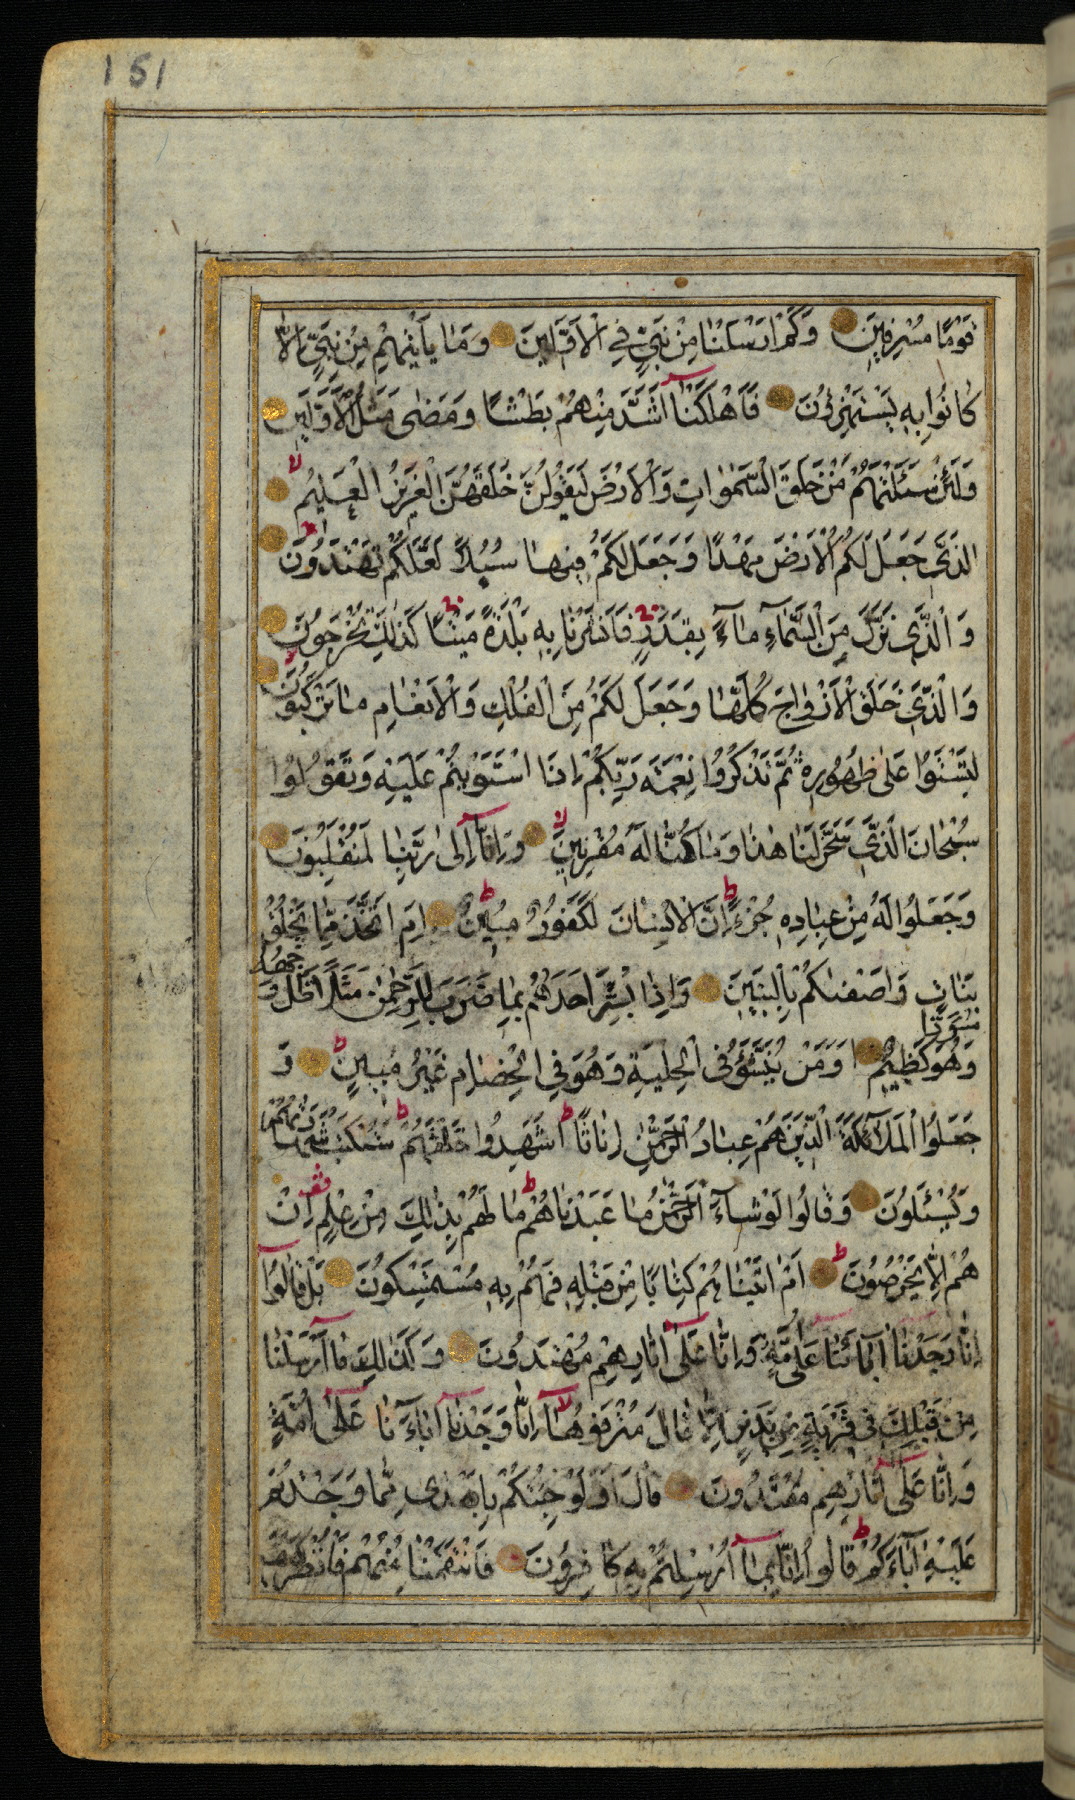 151
قَوْمًا مُسْرِفِينَ وَكَمْ اَرْسَلْنَا مِنْ نَبِىٍّ فِى الْاَوَّلِينَ وَمَا يَاْتِيهِمْ مِنْ نَبِىٍّ اِلَّا
كَانُوا بِهِ يَسْتَهْزِؤُنَ فَاَهْلَكْنَٓا اَشَدَّ مِنْهُمْ بَطْشًا وَمَضٰى مَثَلُ الْاَوَّلِينَ
وَلَئِنْ سَئَلْتَهُمْ مَنْ خَلَقَ السَّمٰوَاتِ وَالْاَرْضَ لَيَقُولُنَّ خَلَقَهُنَّ الْعَزِيزُ الْعَلِيمُ لا
الَّذِى جَعَلَ لَكُمُ الْاَرْضَ مَهْدًا وَجَعَلَ لَكُمْ فِيهَا سُبُلًا لَعَلَّكُمْ تَهْتَدُونَ
وَالَّذِى نَزَّلَ مِنَ السَّمَآءِ مَآءً بِقَدَرٍ فَاَنْشَرْنَا بِهِ بَلْدَةً مَيْتًا كَذٰلِكَ تُخْرَجُونَ
وَالَّذِى خَلَقَ الْاَزْوَاجَ كُلَّهَا وَجَعَلَ لَكُمْ مِنَ الْفُلْكِ وَالْاَنْعَامِ مَا تَرْكَبُونَ
لِتَسْتَوُا عَلٰى ظُهُورِهِ ثُمَّ تَذْكُرُوا نِعْمَةَ رَبِّكُمْ اِذَا اسْتَوَيْتُمْ عَلَيْهِ وَتَقُولُوا
سُبْحَانَ الَّذِى سَخَّرَ لَنَا هٰذَا وَمَا كُنَّا لَهُ مُقْرِنِينَ لا وَاِنَّٓا اِلٰى رَبِّنَا لَمُنْقَلِبُونَ
وَجَعَلُوا لَهُ مِنْ عِبَادِهِ جُزْءًا ط اِنَّ الْاِنْسَانَ لَكَفُورٌ مُبِينٌ ط اَمِ اتَّخَذَ مِمَّا يَخْلُقُ
بَنَاتٍ وَاَصْفٰيكُمْ بِالْبَنِينَ وَاِذَا بُشِّرَ اَحَدُهُمْ بِمَا ضَرَبَ لِلرَّحْمٰنِ مَثَلًا ظَلَّ وَجْهُهُ
مُسْوَدًّا وَهُوَ كَظِيمٌ اَوَمَنْ يُنَشَّؤُا فِى الْحِلْيَةِ وَهُوَ فِى الْخِصَامِ غَيْرُ مُبِينٍ ط وَ
جَعَلُوا الْمَلَآئِكَةَ الَّذِينَ هُمْ عِبَادُ الرَّحْمٰنِ اِنَاثًا ط اَشَهِدُوا خَلْقَهُمْ ط سَتُكْتَبُ شَهَادَتُهُمْ
وَيُسْئَلُونَ وَقَالُوا لَوْ شَآءَ الرَّحْمٰنُ مَا عَبَدْنَاهُمْ ط مَا لَهُمْ بِذٰلِكَ مِنْ عِلْمٍ اِنْ
هُمْ اِلَّا يَخْرُصُونَ ط اَمْ اٰتَيْنَاهُمْ كِتَابًا مِنْ قَبْلِهِ فَهُمْ بِهِ مُسْتَمْسِكُونَ بَلْ قَالُوٓا
اِنَّا وَجَدْنَٓا اٰبَآئَنَا عَلٰٓى اُمَّةٍ وَاِنَّا عَلٰٓى اٰثَارِهِمْ مُهْتَدُونَ وَكَذٰلِكَ مَٓا اَرْسَلْنَا
مِنْ قَبْلِكَ فِى قَرْيَةٍ مِنْ نَذِيرٍ اِلَّا قَالَ مُتْرَفُوهَٓا لا اِنَّا وَجَدْنَٓا اٰبَآءَنَا عَلٰٓى اُمَّةٍ
وَاِنَّا عَلٰٓى اٰثَارِهِمْ مُقْتَدُونَ قَالَ اَوَلَوْ جِئْتُكُمْ بِاَهْدٰى مِمَّا وَجَدْتُمْ
عَلَيْهِ اٰبَآءَكُمْ ط قَالُوا اِنَّا بِمَٓا اُرْسِلْتُمْ بِهِ كَافِرُونَ فَانْتَقَمْنَا مِنْهُمْ فَانْظُرْ كَيْفَ